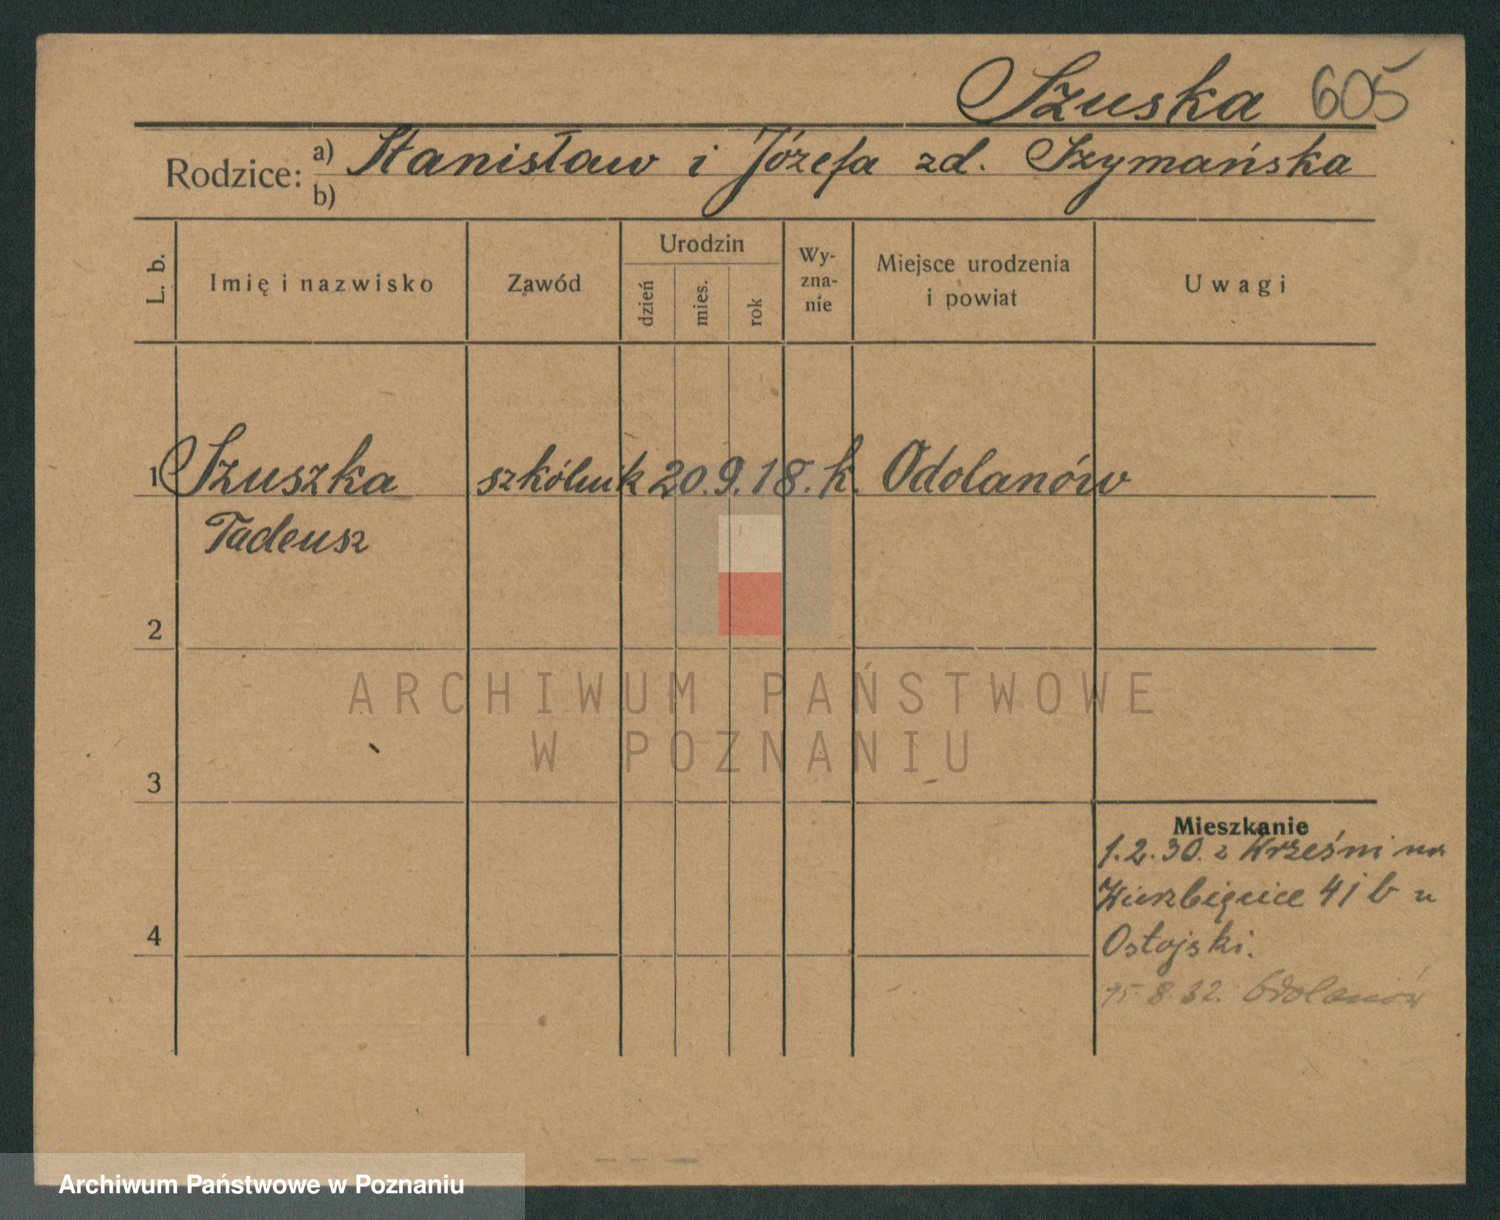 Szuska 605
Rodzice: a) Stanisław i Józefa zd. Szymańska
b)
L. b.
Imię i nazwisko
Zawód
Urodzin
dzień
mies.
rok
Wy-
zna-
nie
Miejsce urodzenia
i powiat
Uwagi
1 Szuszka szkólnik 20.9.18. k. Odolanów
Tadeusz
2
ARCHIWUM PAŃSTWOWE
W POZNANIU
3
Mieszkanie
1.2.30. z Wrześni na
Wierzbięcice 41b u
Ostojski.
4
15.8.32. Odolanów
Archiwum Państwowe w Poznaniu